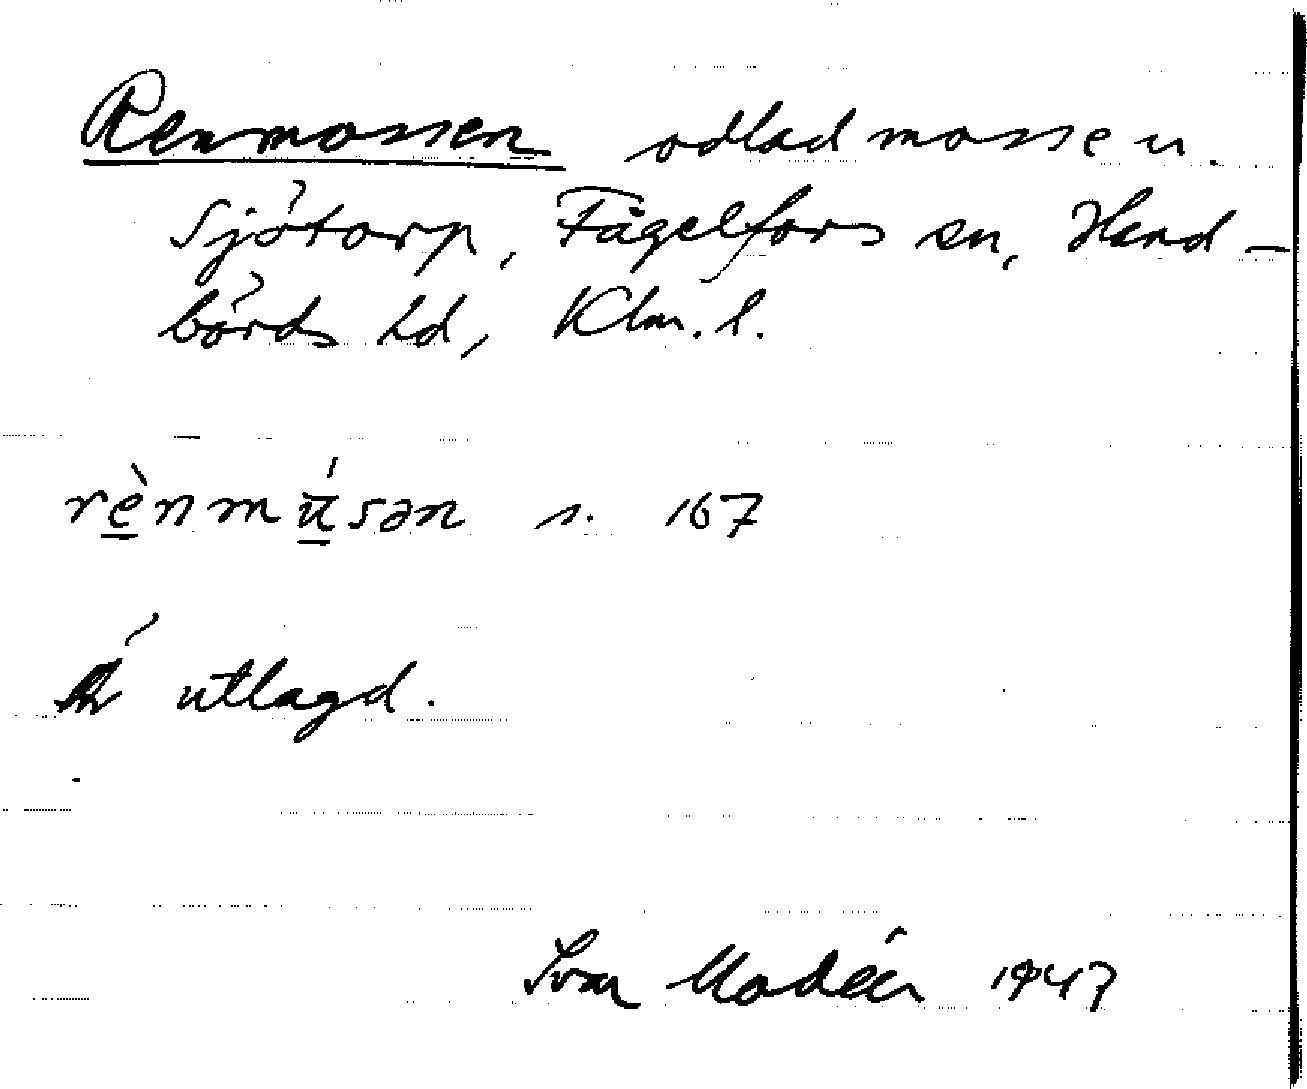 Renmossen odlad mosse u.
Sjötorp, Fågelfors sn, Hand-
börds hd, Klm. l.
rènmúsən s. 167
Är utlagd.
Ivar Modéer 1947